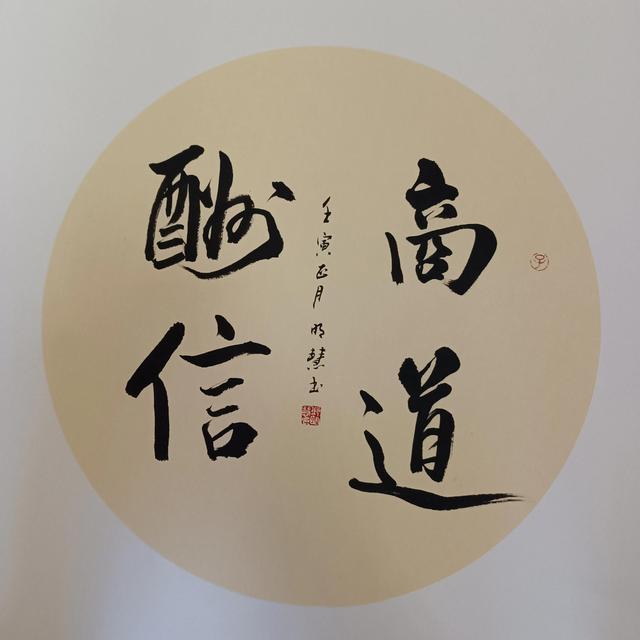 商道
酬信
壬寅正月明慧书